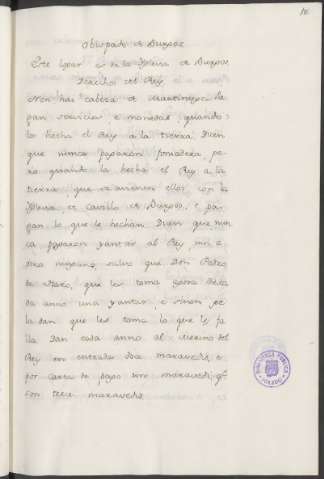 Obispado de Burgos
Este logar es de la Yglesia de Burgos
Derechos del Rey
Non han cabeza de martiniega he
pan servicios, e monedas, quando
lo hecha el Rey a la tierra Dicen
que nunca pagaron fonsadera, pe-
ro quando la hecha el Rey a la
tierra, que se avienen ellos con la
Yglesia, e Cavildo de Burgos, e pa-
gan lo que le hechan Dicen que nun-
ca pagaron yantar al Rey, nin a
otro ninguno, salvo que Don Pedro
de Haro, que les toma cada
da anno una yantar, e sinon, se
la dan que les toma lo que les fa-
lla Dan cada anno al Merino del
Rey por entrada doce maravedis, e
por carta de pago un maravedi,
son trece maravedis
BIBLIOTECA PUBLICA
TOLEDO